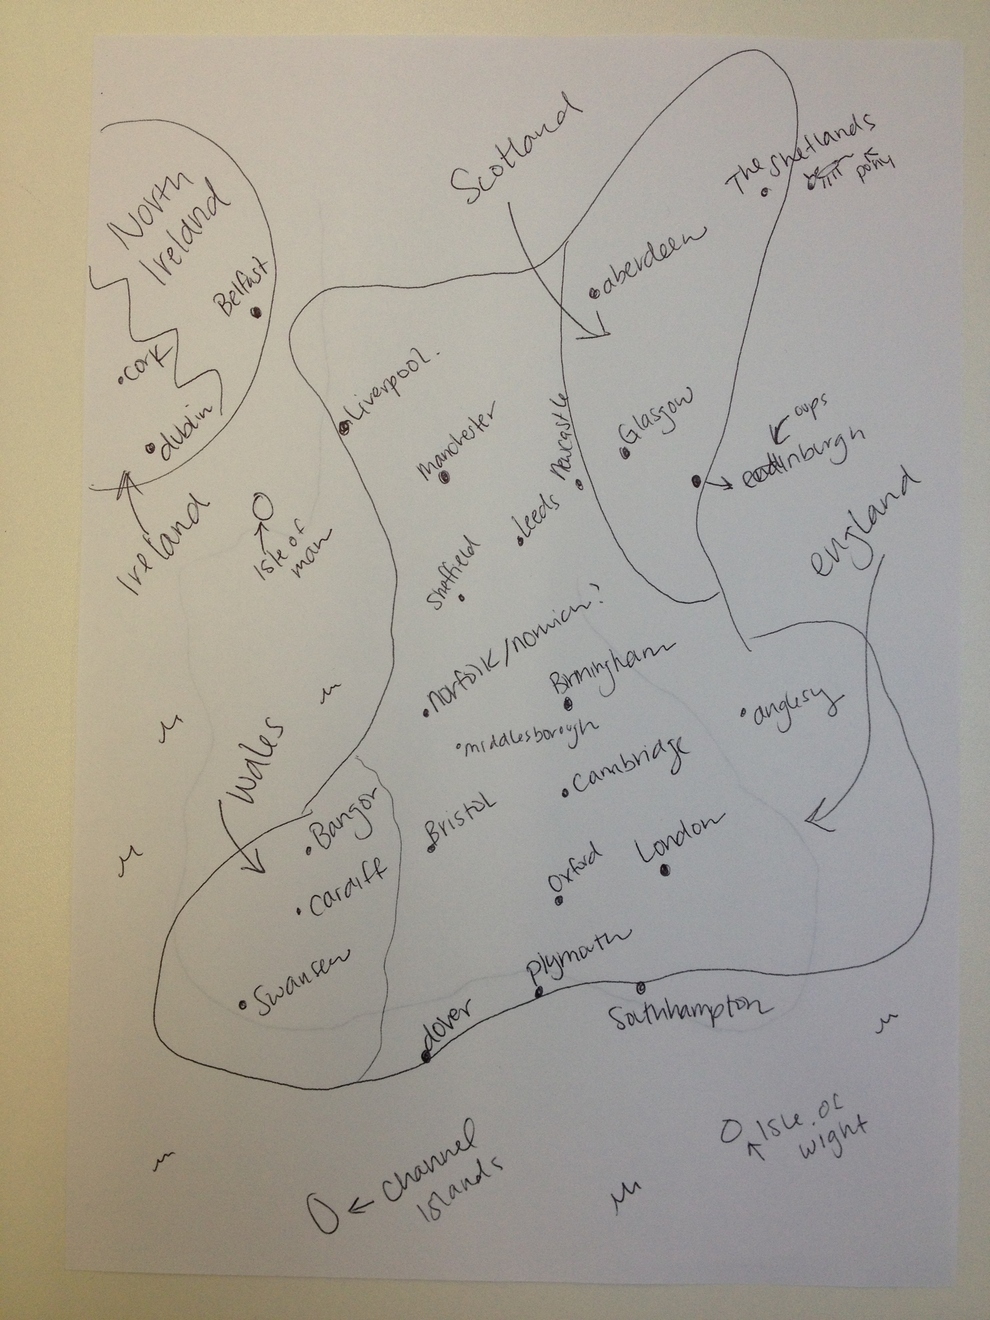 Scotland
The Shetlands
pony
North
Ireland
aberdeen
Belfast
Liverpool.
cork
Manchester
Newcastle
Glasgow
oups
edinburgh
dublin
Ireland
Isle of
man
Leeds
Sheffield
england
norfolk/norwich?
Birmingham
anglesy
middlesborough
Wales
Cambridge
Bangor
Bristol
London
Cardiff
Oxford
Swansea
plymouth
dover
Southhampton
Isle of
wight
channel
islands